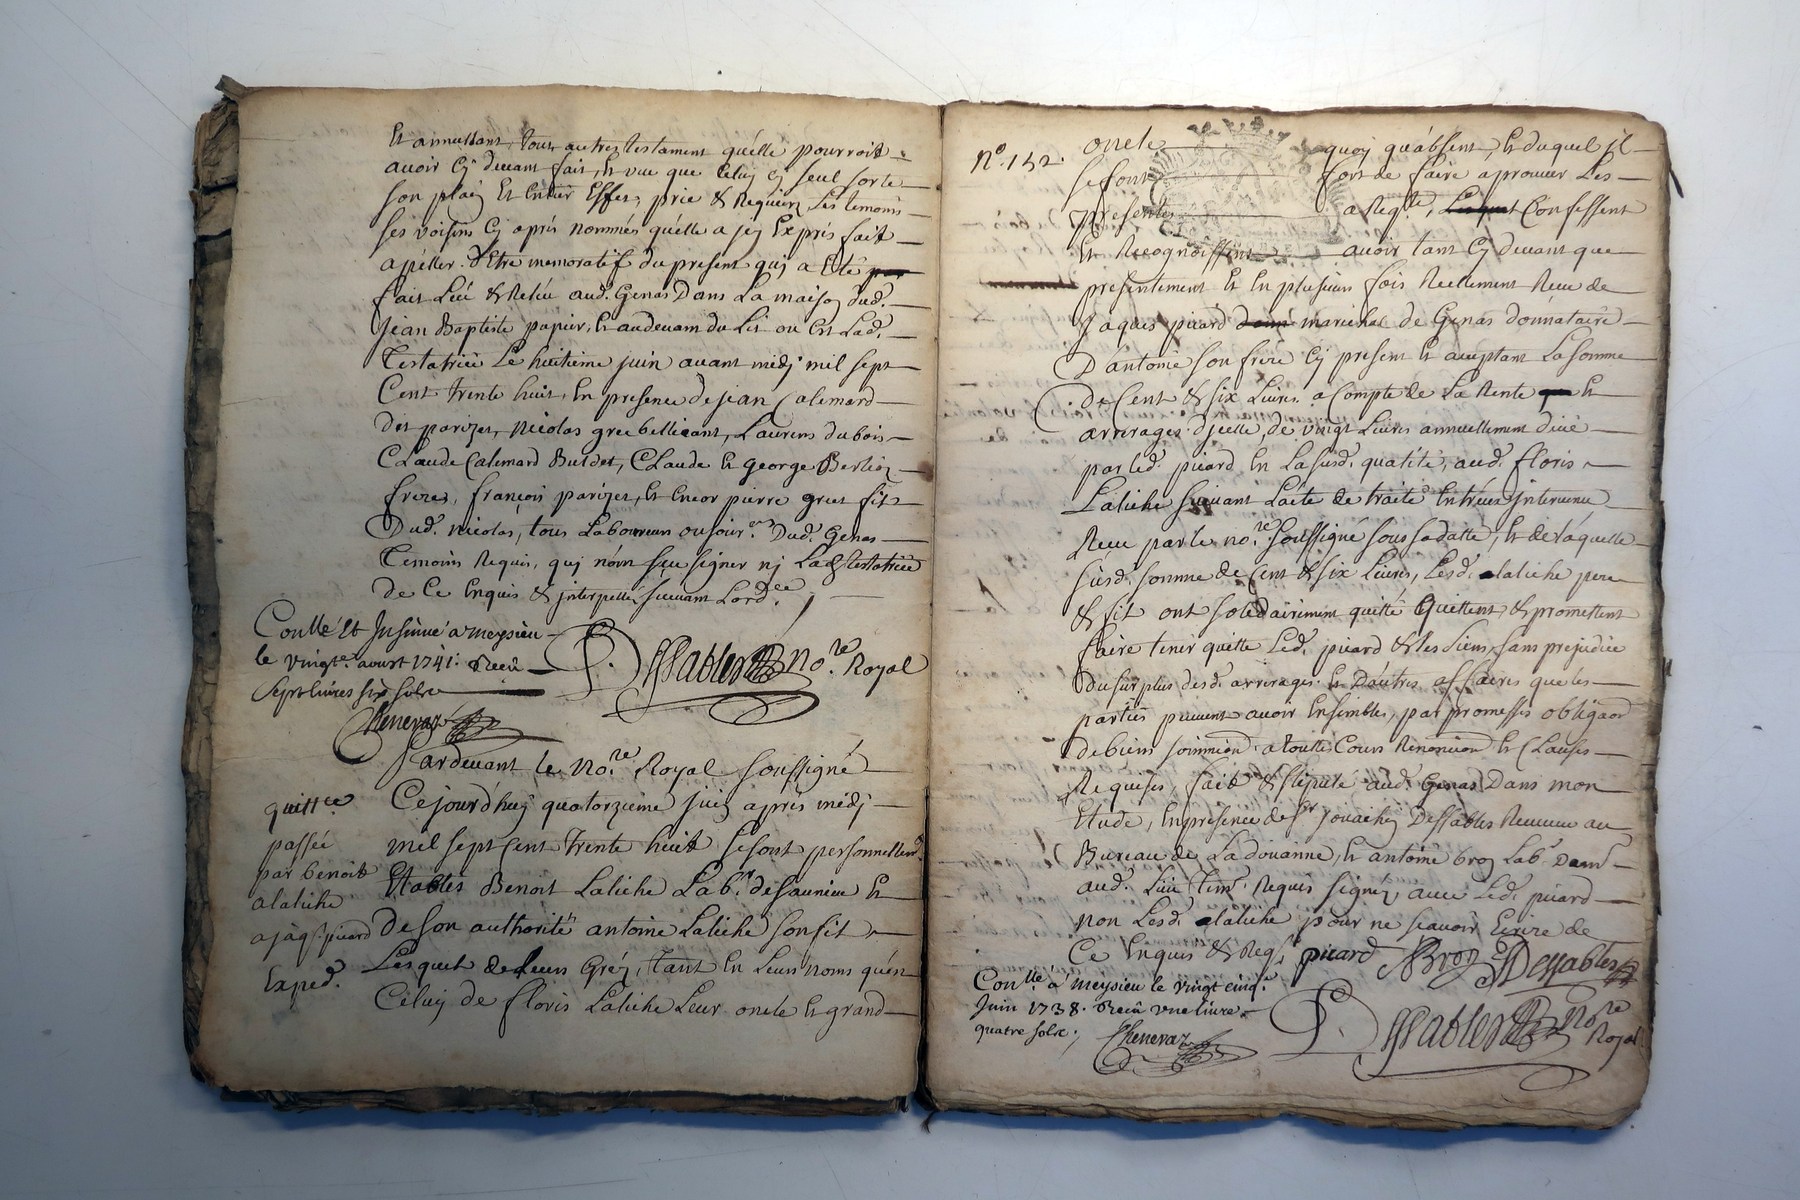 Et annullant, tous autres testament quélle pourroit
avoir cy devant fait, et veut que celuy cy seul sorte
son plain et entier effet, prie & requiere les temoins
ses voisins cy aprés nommés quélle a jcy expres fait
apeller. d'Etre memoratif du present quj a Eté
fait Leü & Relëu aud. Genas Dans La maison dud.
Jean Baptiste papier, et audevant du Lit ou est Lad.
Testatrice Le huitieme juin avant midj mil sept
Cent trente huit, En presence de jean Calemard
dit parizet, nicolas gree bellicant, Laurens dubois
Claude Calemard Burdet, Claude et george Berlioz
freres, françois parizet, et encor pierre gree fils
Dud. nicolas, tous Laboureurs ou jour.ers Dud. Genas
Temoins Requis, quj nónt sceu signer nj Lad. testatrice
de Ce Enquis & jnterpellés suivant Lord.ce
Con.llé Et Jnsinué a meysieu
le vingt.e aoust 1741. Receü
Sept livres six sols
Chenevaz
P. Dessables no.re Royal
Pardevant le No.re Royal soussigné
Cejourd'huy quatorzieme juin aprés midj
mil sept Cent trente huit se sont personnellem.t
Etablis Benoit Laliche Lab.r de saunieu et
de son authorité antoine Laliche son fils
Lesquels de leurs Gréz, tant En Leurs noms qu'en
Céluy de floris Laliche Leur oncle et grand
quitt.ce
passée
par benoit
alaliche
a jàq.s picard
Exped.
N.o 152.
oncle quoy qu'absent, et duquel jl
se font fort de faire aprouver Les
presentes a Req.te, Confessent
Et Recognoissent avoir tant cy devant que
presentement et En plusieurs fois Reellement Receu de
Jàques picard marechal de Genas donnataire
D'antoine son frere cy present et aceptant La somme
de Cent & six Livres a Compte de La Rente et
arrerages djcelle, de vingt Livres annuellement diüe
par led. picard En La susd. qualité, aud. floris
Laliche suivant L'acte de traité Entreux jntervenu
Receu par le no.re soussigné sous sa datte, et de láquelle
susd. somme de Cent & six Livres, Lesd. alaliche pere
& fils ont solidairement quitté Quittent, & promettent
faire tenir quitte Led. picard & les siens, sans prejudice
Du surplus desd. arrerages et D'autres affaires que lés
parties peuvent avoir Ensembles, par promesses obligaõn
de biens soûmission a toutte Cours Renonciõn et Clauses
Requises, fait & stipulé aud. Genas Dans mon
Etude, En présence de S.r jouachin Dessables Receveur au
Bureau de La douanne, et antoine broz Lab.
aud. Lieu tem.s Requis signéz, avec Led. picard
non Lesd. alaliche pour ne scavoir Ecrire de
Ce Enquis & Req.s picard ABroz JDessables
Con.llé a meysieu le vingt cinq.e
Juin 1738. Receü une livre
quatre sols. Chenevaz
P. Dessables no.re
Royal